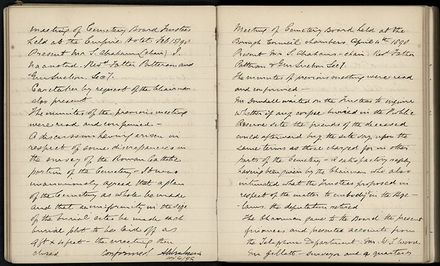 Meeting of Cemetery Board Trustees
held at the Empire Feby 1898
Present Mr J. Abrahams (chair) J.
Revd Father Patterson and
Secy.
Caretaker by request of the Chairman
also present
The minutes of the previous meeting
were read and confirmed —
A discussion having arisen in
respect of some discrepancies in
the survey of the Roman Catholic
portion of the Cemetery — It was
unanimously agreed that a plan
of the Cemetery as whole be made
and that as uniformity in the size
of the burial sites be made each
burial plot to be laid off as
8ft x 4 feet — the meeting then
closed Confirmed
Meeting of Cemetery Board held at the
Borough Council chambers April 1898
Present Mr J. Abrahams — chair. Revd Father
Patterson & Secy.
The minutes of previous meeting were read
and confirmed —
Mr waited on the Trustees to inquire
whether if any corpse buried in the Public
Reserve site the friends of the deceased
could afterward buy the site say, upon the
same terms as those charged for in other
parts of the Cemetery — a satisfactory reply
having been given by the Chairman who also
intimated what the Trustees proposed in
respect of the matter to embody in the Bye-
laws the deputation retired
The Chairman gave to the Board the present
and presented accounts from
the Telephone Department. Mr W. J. Wood
Mr Follett — Surveys and a quarter's